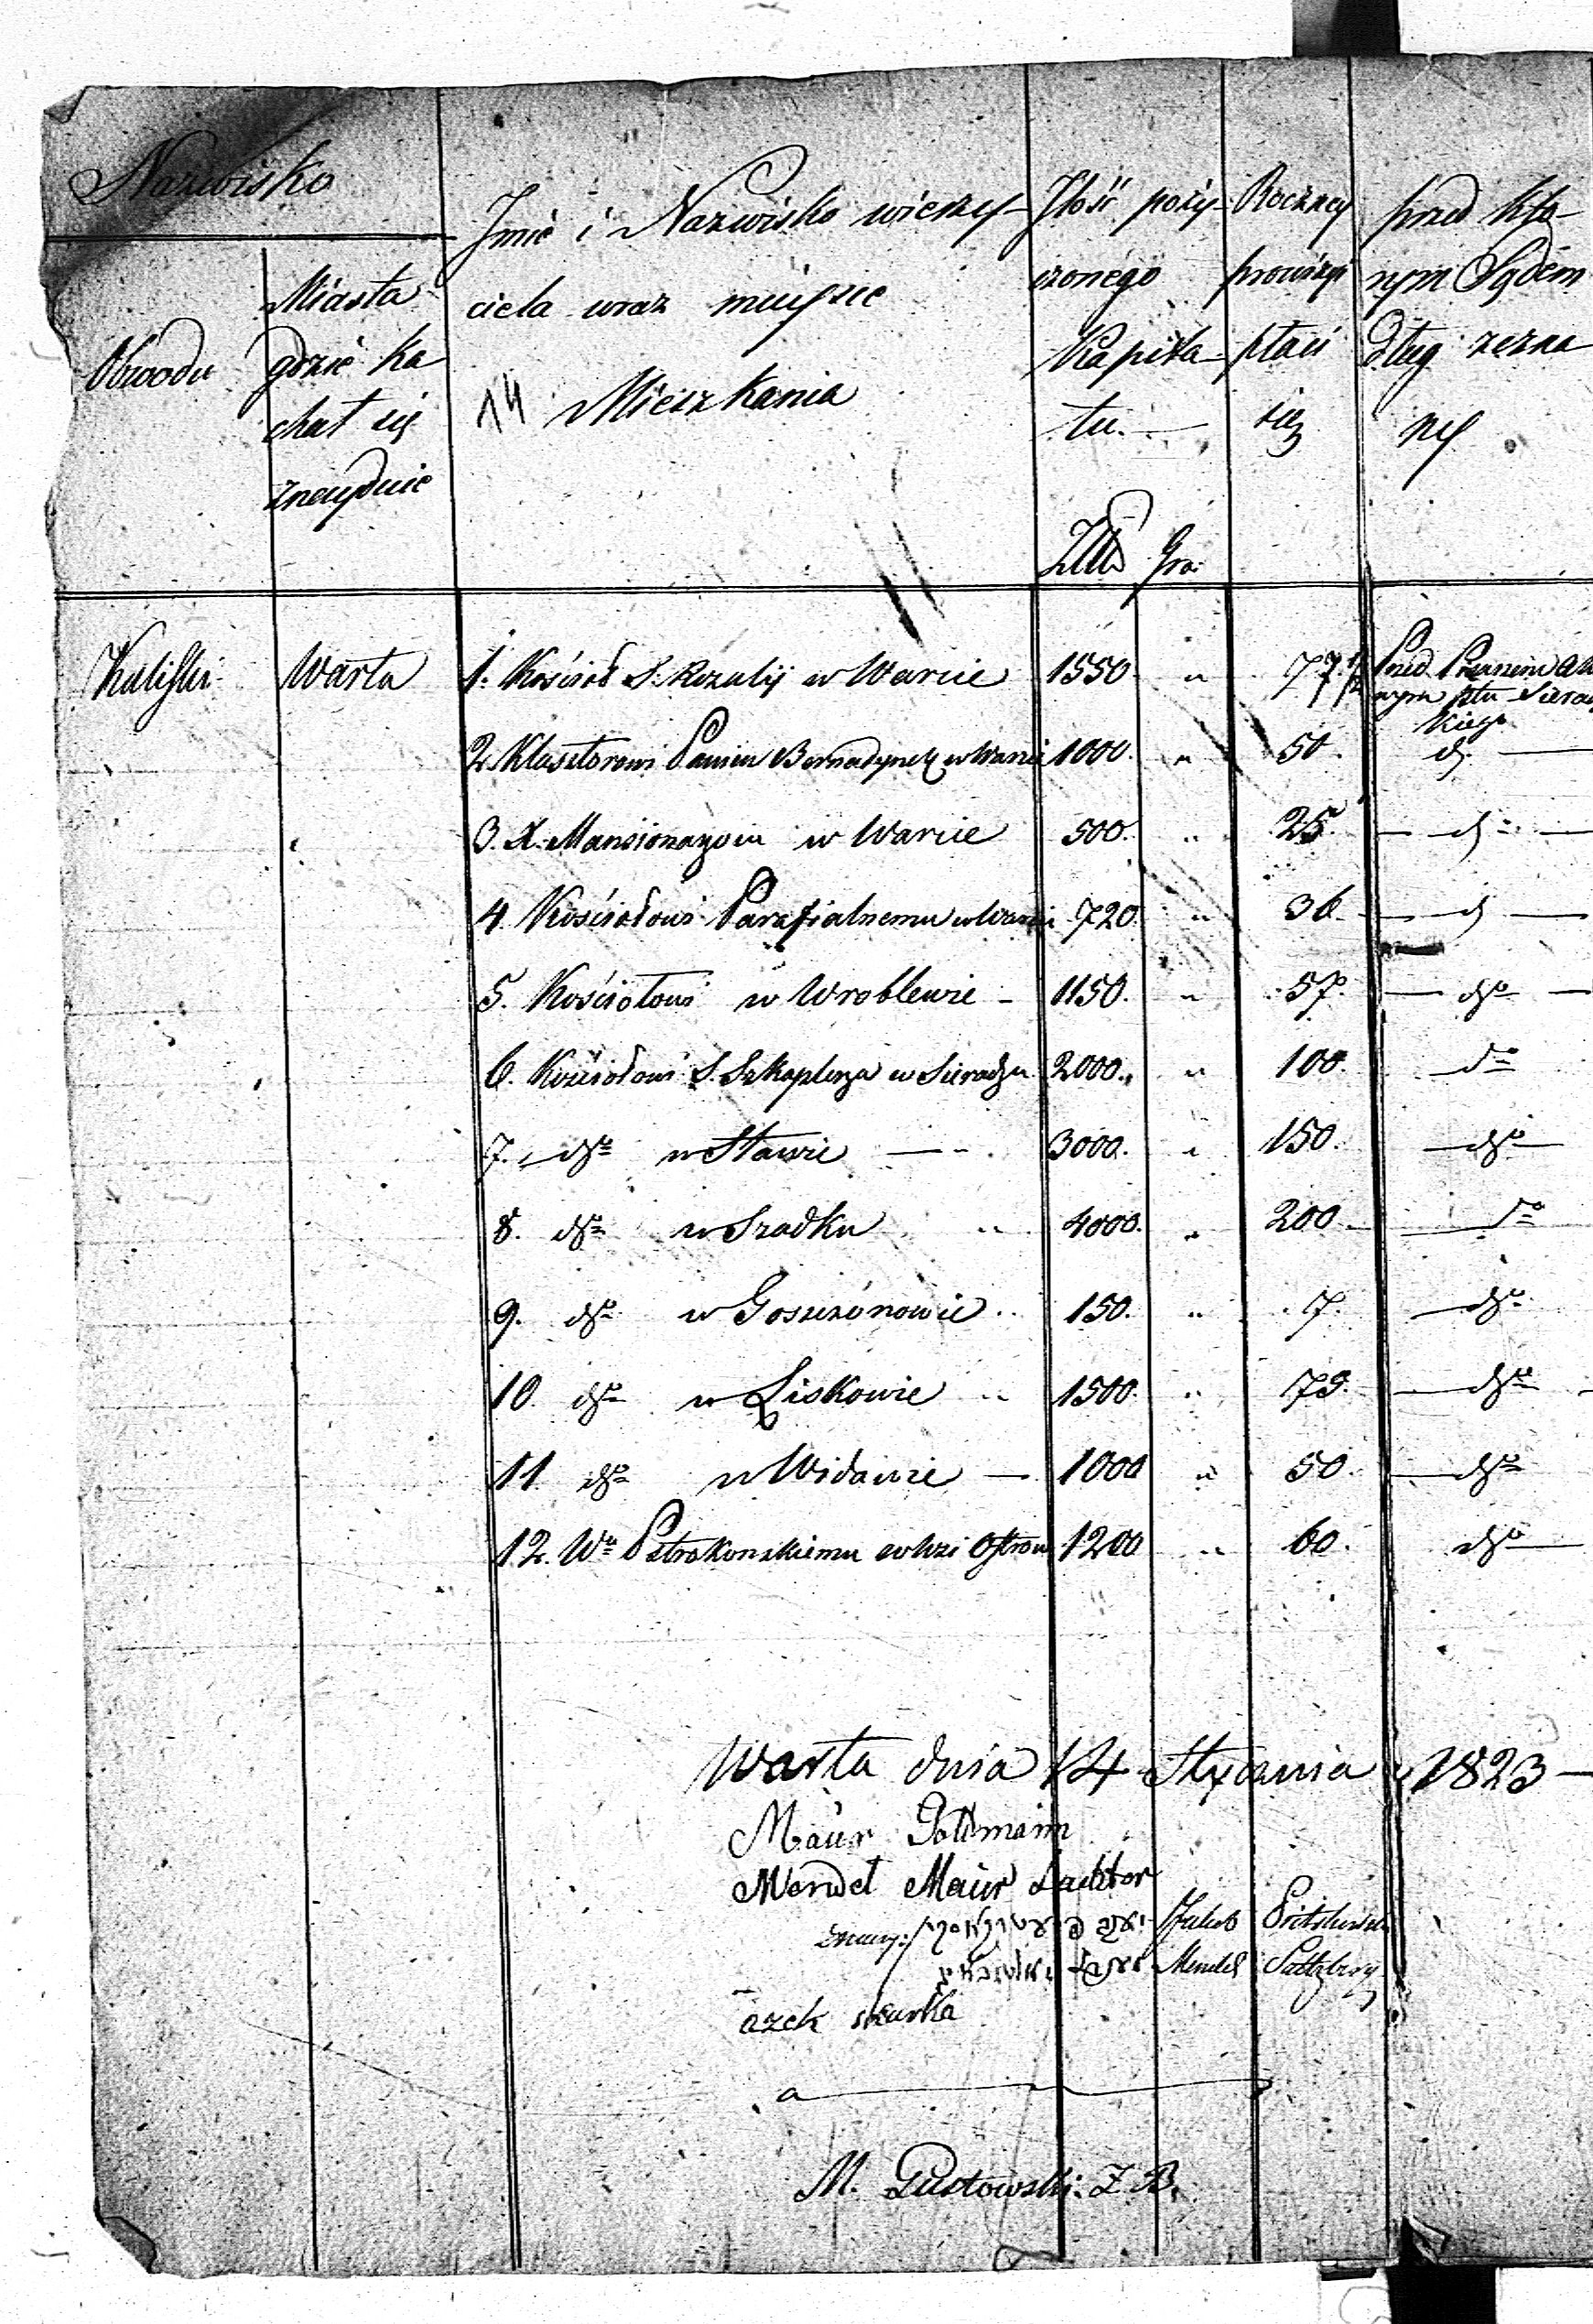 Nazwisko
Obwodu
Miasta
gdzie Ka
chał się
znayduie
Jmie i Nazwisko wierzy-
ciela wraz mieysce
14 Mieszkania
Jlość poży-
czonego
Kapita-
łu. —
Roczney
prowizyi
płaci
się
przed któ-
rym Sądem
dług zezna
ny
Złt Gro:
Kaliski Warta 1. Kościoł S. Rozalij w Warcie 1550. " 77 1/2 Przed Pisarzem
wym ptu Sieradz
kiego
2. Klasztorowi Panien Bernadynek w Warcie 1000. " 50. d —
3. X. Mansionarzom w Warcie 500. " 25. — d —
4. Kościołowi Parafialnemu w Warcie 720. " 36. — d —
5. Kościołowi w Wroblewie — 1150. " 57. — dto —
6. Kościołowi S. Szkaplerza w Sieradzu 2000. " 100. do
7. dto w Stawie — 3000. " 150. — dto —
8. dto w Szadku " 4000. " 200. — do
9. dto w Goszczonowie .. 150. " 7. — dto
10. dto w Liskowie " 1500. " 75. — dto —
11. dto w Widawie — 1000 " 50. — dto
12. Wu Pstrokonskiemu we Wsi Ostrow 1200 " 60. dto —
Warta dnia 14 Stycznia 1823 —
Maür Goldmann
Mendel Maür
znaczy: Jakub
Mendel Saltzberg
M. Gustowski. Z. B.